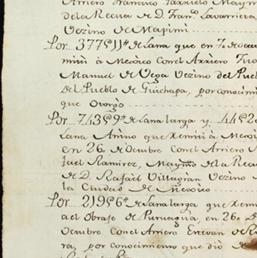 Arriero Francisco
de la Recua de D. Fran.co Lavarriera
Vezino de Mapimi
Por 377@11 de Lana que en 7 de
miti à Mexico con el Arriero
Manuel de Vega Vezino del Pueb
del Pueblo de Guichapa, por conocim
que otorgo
Por 743@9 de Lana larga y 44@2
Lana Anino que remiti à Mexi
en 26 de Octubre con el Arriero
fael Ramirez, May.mo de la Recua
de D. Rafael Villagran Vezino
la Ciudad de Mexico
Por 219@6 de Lana larga que remi
a el Obraje de Puruagua, en 26 de
Octubre con el Arriero Estevan de
ra, por conocimiento que dió